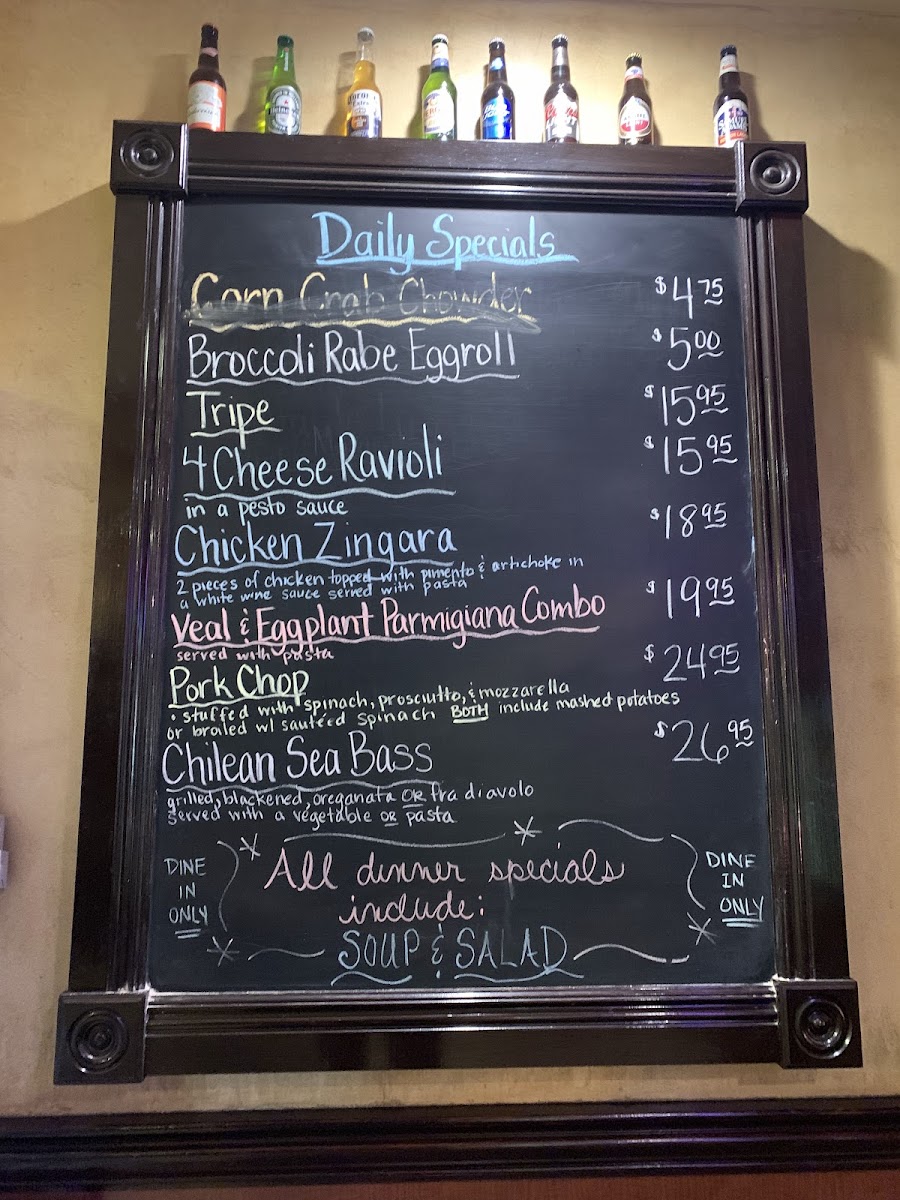 Daily Specials
Corn Crab Chowder $4.75
Broccoli Rabe Eggroll $5.00
Tripe $15.95
4 Cheese Ravioli $15.95
in a pesto sauce
Chicken Zingara $18.95
2 pieces of chicken topped with pimento & artichoke in
a white wine sauce served with pasta
Veal & Eggplant Parmigiana Combo $19.95
served with pasta
Pork Chop $24.95
• stuffed with spinach, prosciutto, & mozzarella
or broiled w/ sauteéd spinach BOTH include mashed potatoes
Chilean Sea Bass $26.95
grilled, blackened, oreganata OR fra diavolo
served with a vegetable OR pasta
DINE
IN
ONLY
All dinner specials
include:
SOUP & SALAD
DINE
IN
ONLY